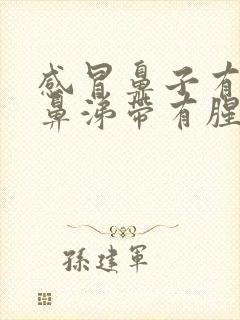 感冒鼻子有
鼻涕带有腥
孫建軍